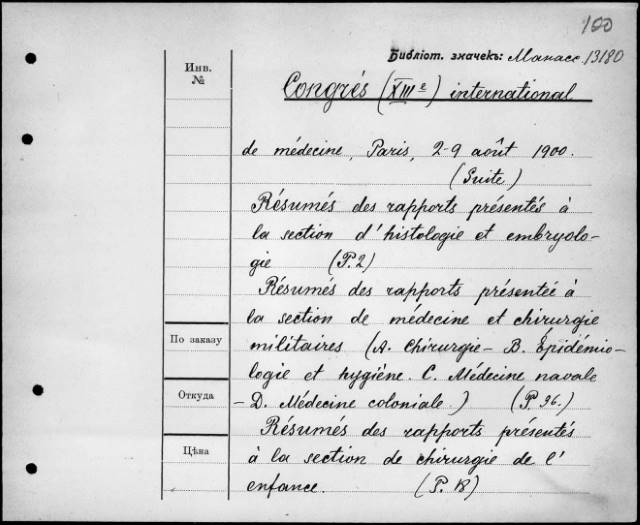 100
Библіот. значекъ: Манасс. 13180
Инв.
№
Congrès (XIIIe) international
de médecine, Paris, 2-9 août 1900.
(Suite)
Résumés des rapports présentés à
la section d'histologie et embryolo-
gie (P. 2)
Résumés des rapports présentée à
la section de médecine et chirurgie
militaires (A. Chirurgie - B. Épidémio-
logie et hygiène. C. Médecine navale
- D. Médecine coloniale.) (P. 96.)
Résumés des rapports présentés
à la section de chirurgie de l'
enfance. (P. 18)
По заказу
Откуда
Цѣна